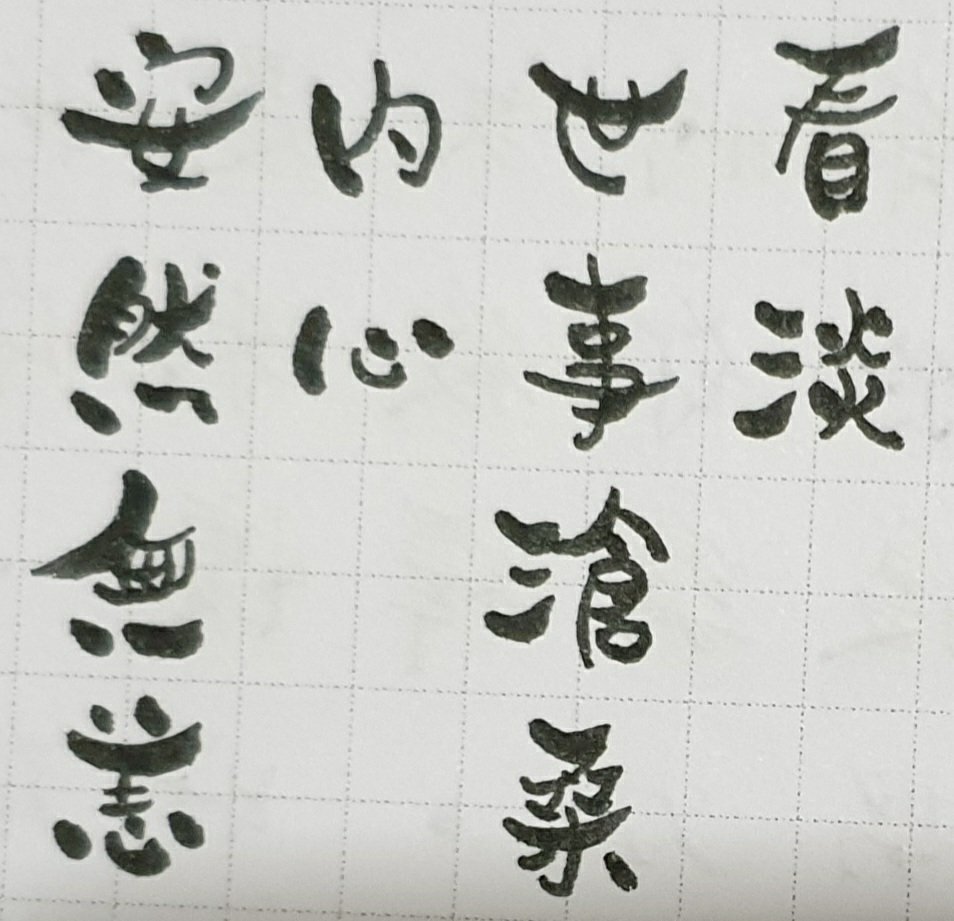 看淡
世事滄桑
内心
安然無恙